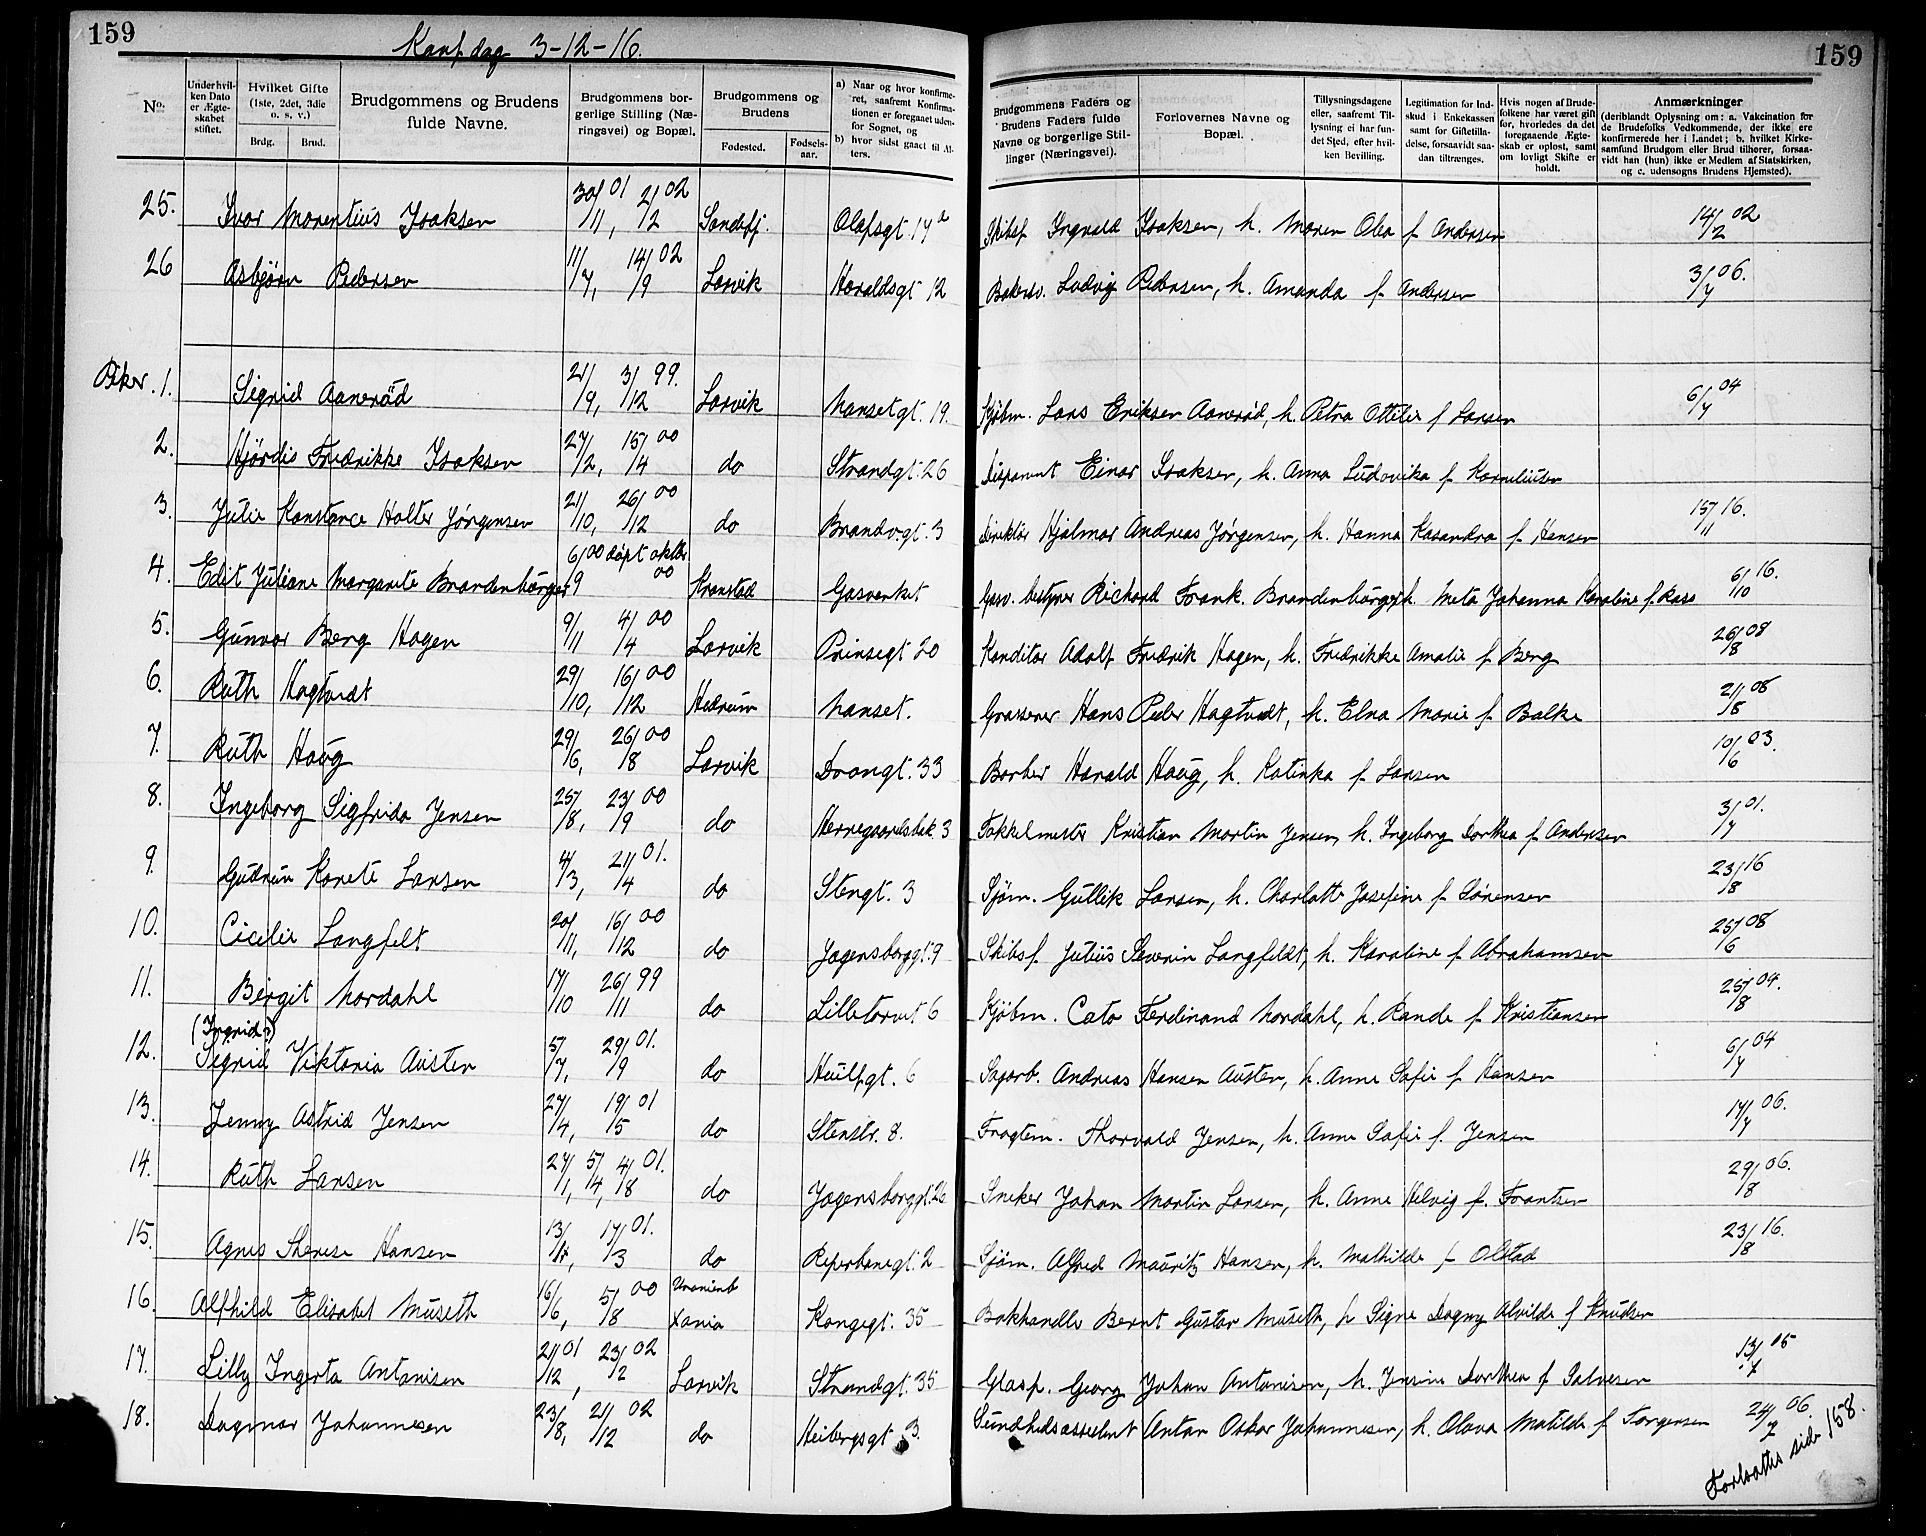 159
Konf. dag 3-12-16.
159
No.
Underhvilken Dato er Ægteskabet stiftet.
Hvilket Gifte (1ste, 2det, 3die o. s. v.)
Brdg. Brud.
Brudgommens og Brudens fulde Navne.
Brudgommens borgerlige Stilling (Næringsvei) og Bopæl.
Brudgommens og Brudens
Fødested. Fødselsaar.
a) Naar og hvor konfirmeret, saafremt Konfirmationen er foregaaet udenfor Sognet, og
b) hvor sidst gaaet til Alters.
Brudgommens Faders og Brudens Faders fulde Navne og borgerlige Stillinger (Næringsvei).
Forlovernes Navne og Bopæl.
Tillysningsdagene eller, saafremt Tillysning ei har fundet Sted, efter hvilken Bevilling.
Legitimation for Indskud i Enkekassen samt for Giftetilladelse, forsaavidt saadan tiltrænges.
Hvis nogen af Brudefolkene har været gift før, hvorledes da det foregaaende Ægteskab er opløst, samt om lovligt Skifte er holdt.
Anmærkninger
(deriblandt Oplysning om: a. Vakcination for de Brudefolks Vedkommende, der ikke ere konfirmerede her i Landet; b. hvilket Kirkesamfund Brudgom eller Brud tilhører, forsaavidt han (hun) ikke er Medlem af Statskirken, og c. udensogns Brudens Hjemsted).
25. Ivar Morentius Isaksen 30/11 01, 2/12 02 Sandefj. Olafsgt. 14a Skibsf. Ingvald Isaksen, h. Maren Olea f. Andersen 14/2 02
26 Asbjørn Pedersen 11/7, 14/9 02 Larvik Haraldsgt 12 Ludvig Pedersen, h. Amanda f. Andersen 3/7 06.
Piker. 1. Sigrid Aanerød 21/9, 3/12 99. Larvik Nansetgt. 19. Kjøbm. Lars Eriksen Aanerød, h. Petra Ottilie f. Larsen 6/7 04
2. Hjørdis Fredrikke Isaksen 27/2, 15/4 00 do Strandgt. 26 Disponent Einar Isaksen, h. Anna Ludovika f. Korneliusen
3. Julie Konstance Holter Jørgensen 21/10, 26/12 00 do Brandvgt. 3 Direktør Hjalmar Andreas Jørgensen, h. Hanna Kasandra f. Hansen 15/11 16.
4. Edit Juliane Margarete Brandenbürger 6/9 00 døpt oktbr. 00 Kranstad Gasverket Gasv. bestyrer Richard Frank. Brandenbürger, h. Meta Johanna Karoline f. Rass 6/10 16.
5. Gunvor Berg Hagen 9/11 4/4 00 Larvik Prinsegt 20 Konditor Adolf Fredrik Hagen, h. Fredrikke Amalie f. Berg 26/8 08
6. Ruth Hagtvedt 29/10, 16/12 00 Hedrum Nanset. Hans Peder Hagtvedt, h. Elna Marie f. Balke 21/8 08
7. Ruth Haug 29/6, 26/8 00 Larvik Drongt. 33 Barber Harald Haug, h. Katinka f. Larsen 10/6 03.
8. Ingeborg Sigfrida Jensen 25/8, 23/9 00 do Herregaardsbak. 3 Kristian Martin Jensen, h. Ingeborg Dorthea f. Andersen 3/7 01.
9. Gudrun Karete Larsen 4/3, 21/4 01. do Stengt. 3 Sjøm. Gullik Larsen, h. Charlotte Josefine f. Sørensen 23/8 16
10. Cicilie Langfelt 20/11, 16/12 00 do Jegersborggt. 9 Skibsf. Julius Severin Langfeldt, h. Karoline f. Abrahamsen 25/6 08
11. Birgit Nordahl 17/10 26/11 99 do Lilletorvet 6 Kjøbm. Cato Ferdinand Nordahl, h. Rande f. Kristiansen 25/8 04.
(Ingrid?)
12. Sigrid Viktoria Austen 5/7, 29/9 01. do Huulfgt. 6 Sagarb. Andreas Hansen Austen, h. Anne Sofie f. Hansen 6/7 04
13. Jenny Astrid Jensen 27/4, 19/5 01 do Stenstr. 8. Fragtem. Thorvald Jensen, h. Anna Sofie f. Jensen 17/7 06.
14. Ruth Larsen 27/1, 5/4, 4/8 01. do Jegersborggt. 26 Sneker Johan Martin Larsen, h. Anne Helvig f. Frantsen 29/8 06.
15. Agnes Therese Hansen 13/1, 17/3 01. do Reperbanegt. 2 Sjøm. Alfred Mauritz Hansen, h. Mathilde f. Olstad 23/8 16.
16. Alfhild Elisabet Museth 16/6, 5/8 00 Uranienb Xania Kongegt. 35 Bokhandler Bernt Gustav Museth, h Signe Dagny Alvilde f Knudsen
17. Lilly Ingerta Antonisen 21/12 01, 23/2 02 Larvik Strandgt. 35 Glasp. Georg Johan Antonisen, h. Jensine Dorthea f Salvesen 13/7 05
18. Dagmar Johannesen 23/8, 21/12 02 do Heibergsgt 3. Sundhedsassistent Anton Oskar Johannesen, h. Olava Matilde f. Torgersen 24/7 06.
Fortsættes side 158.